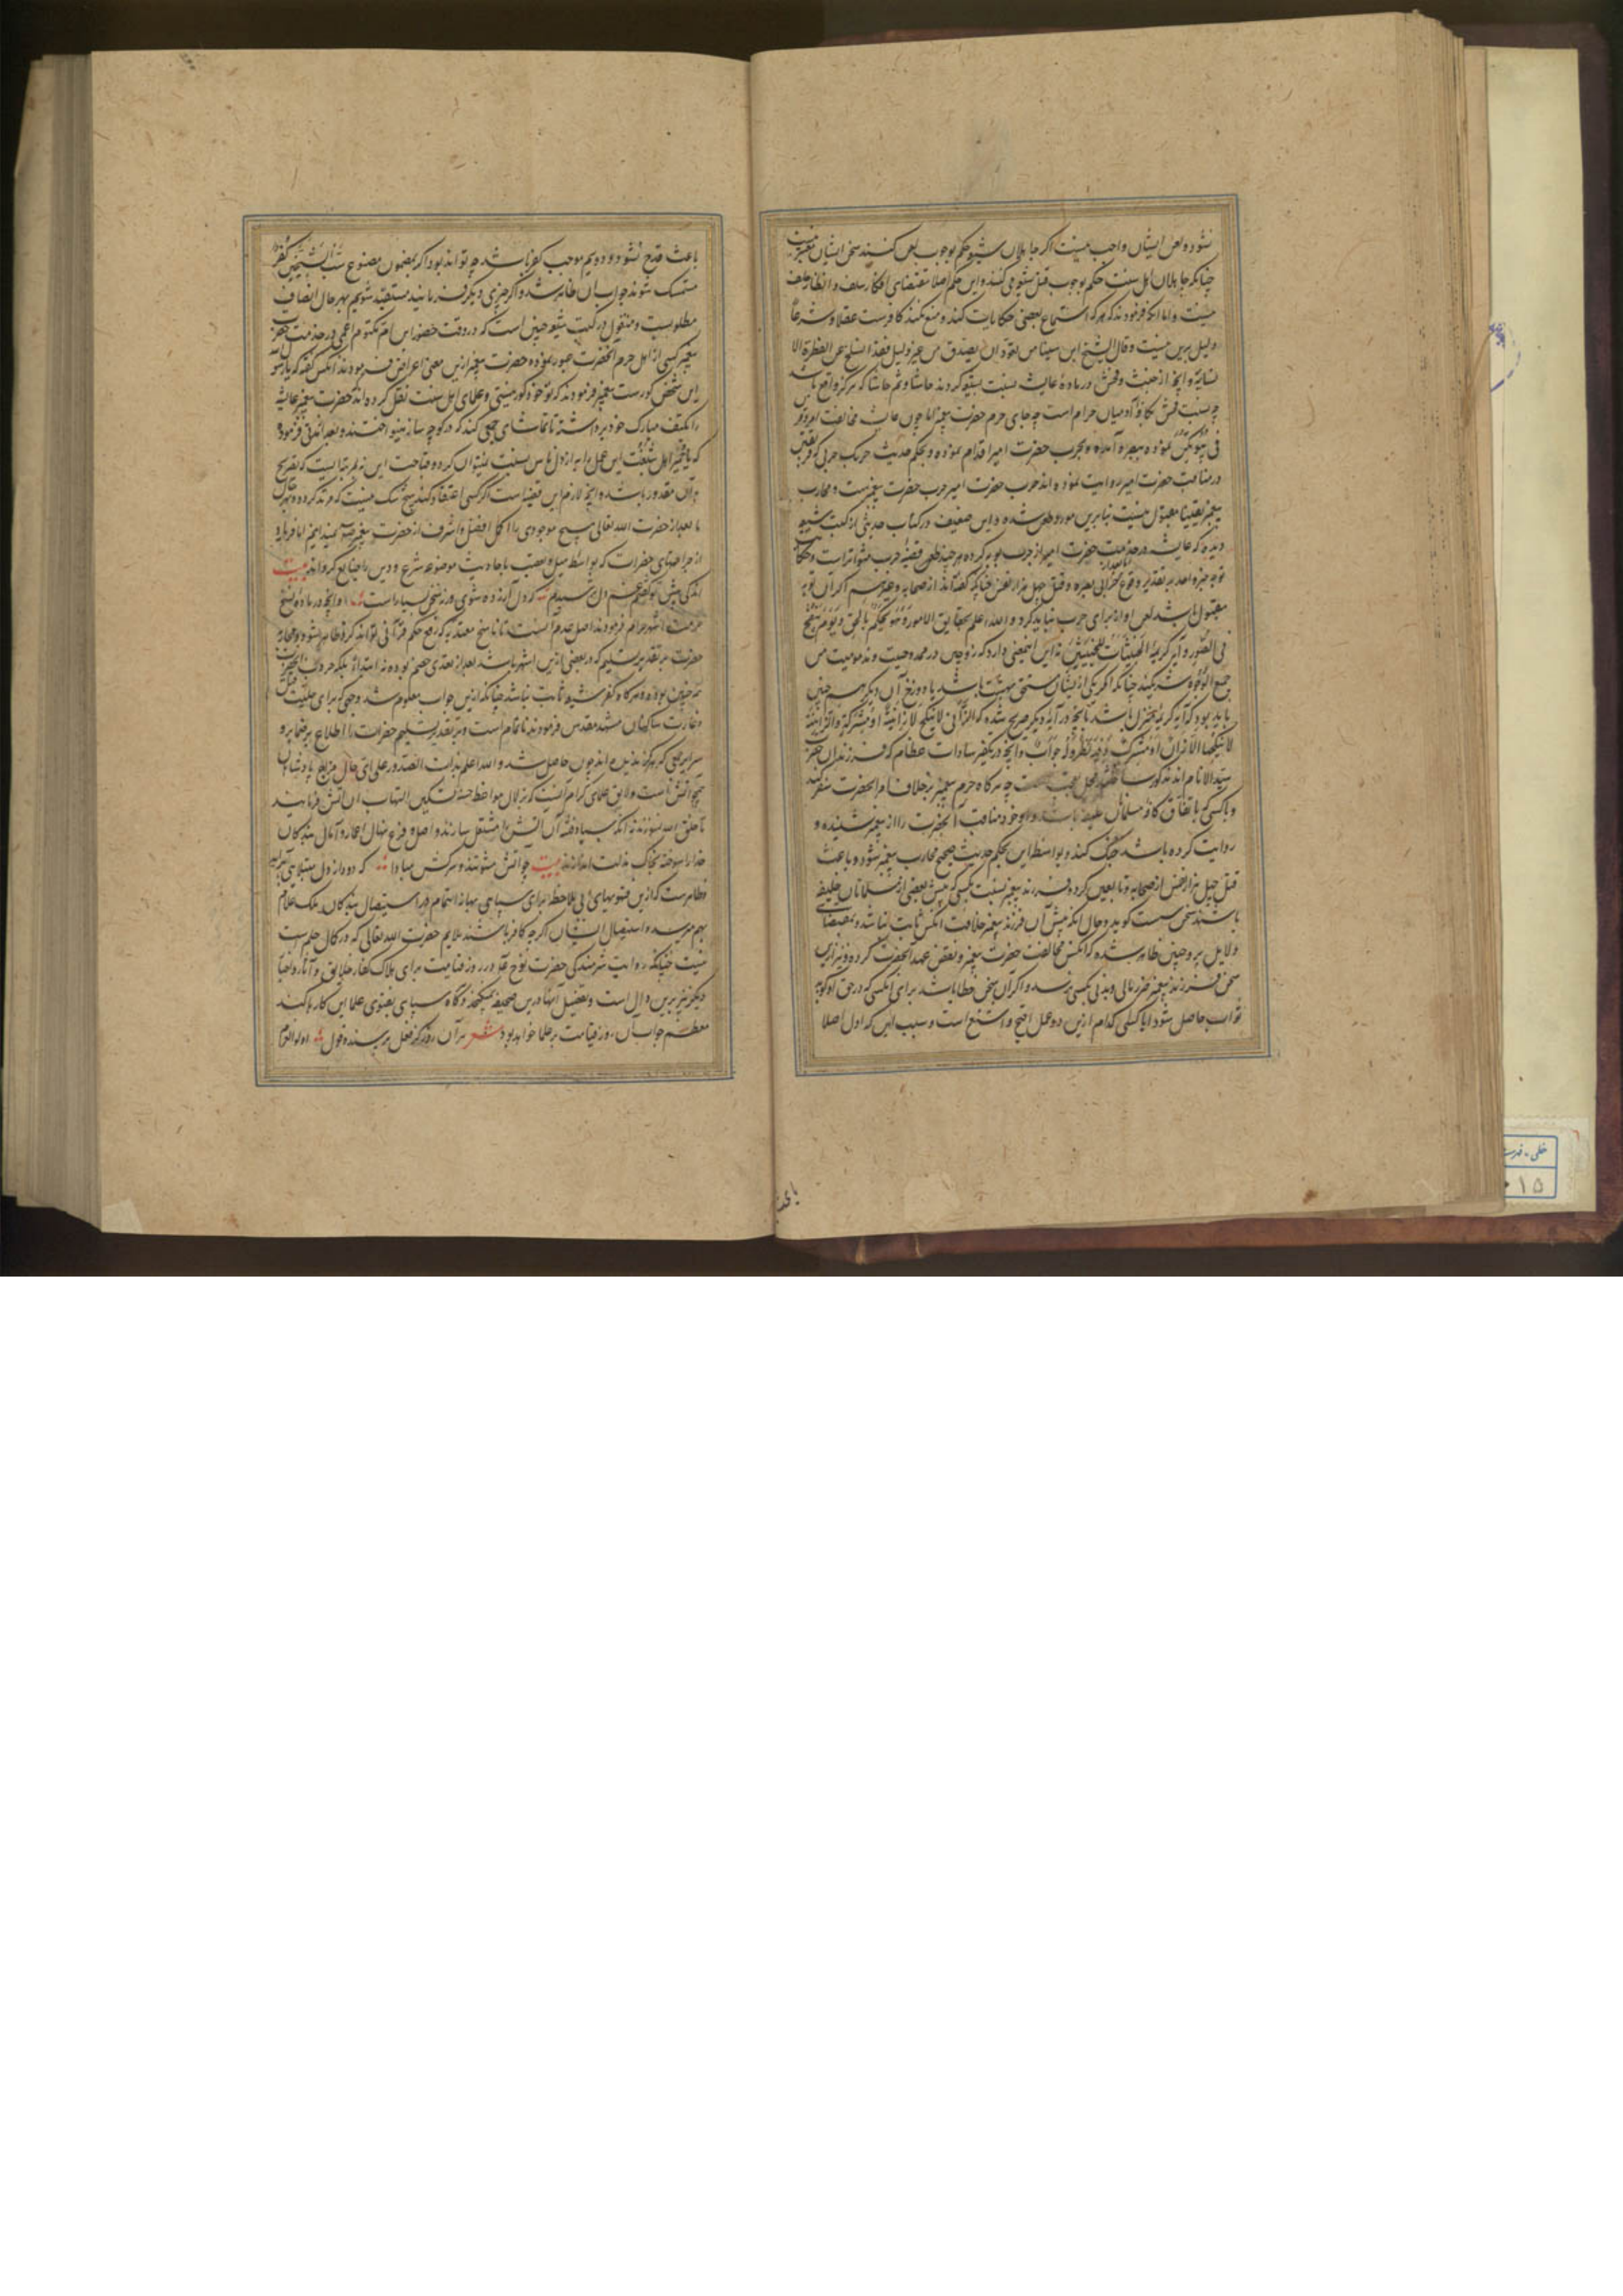 نشود و لعن ایشان واجب نیست اگر جاهلان شیعه حکم بوجوب لعن کنند سخن ایشان معتبر نیست
چنانکه جاهلان اهل سنت حکم بوجوب قتل شیعه می کنند و این حکم اصلا مقتضای افکار سلف و انظار خلف
نیست و اما آنکه فرمودند که هرکه استماع بعضی حکایات کند و منع نکند کافرست عقلا و شرعا
دلیل برین نیست و قال الشیخ ابن سینا من تعود ان یصدق من غیر دلیل فقد انسلخ عن الفطرة الا
نسانیة و آنچه از خبث و فحش در ماده عایشه نسبت بشیعه کردند حاشا و ثم حاشا که هرگز واقع باشد
چه نسبت فحش بکافه آدمیان حرام است چه جای حرم حضرت پیغمبر اما چون عایشه مخالفت امر و قرن
فی بیوتکن نموده ببصره آمده و بحرب حضرت امیر اقدام نموده و بحکم حدیث حربک حربی که فریقین
در مناقب حضرت امیر روایت نموده اند حرب حضرت امیر حرب حضرت پیغمبرست و محارب
پیغمبر یقینا مقبول نیست بنابرین مورد طعن شده و این ضعیف در کتاب حدیثی از کتب شیعه
دیده که عایشه در خدمت حضرت امیر از حرب توبه کرده هر چند قضیه حرب متواتر است و حکایت
توبه خبر واحد بر تقدیر وقوع خرابی بصره و قتل چهل هزار نفس چنانکه گفته اند از صحابه و غیرهم اگر آن توبه
مقبول باشد لعن او را برای حرب نباید کرد و الله اعلم بحقایق الامور و هو یحکم بالحق و یوم ینفخ
فی الصور و آیه کریمه الخبیثات للخبیثین نه این معنی دارد که زوجین در ممدوحیت و مذمومیت من
جمیع الوجوه شریکند چنانکه اگر یکی از ایشان مستحق بهشت باشد یا دوزخ آن دیگر هم چنین
باید بود که آیه کریمه بمنزل باشد بآنچه در آیه دیگر صریح شده که الزانی لا ینکح الا زانیة او مشرکة و الزانیة
لا ینکحها الا زان او مشرک جواب و آنچه در تکفیر سادات عظام که فرزندان حضرت
سید الانام اند مذکور چه هرگاه حرم پیغمبر برخلاف امر آنحضرت سفر کند
و با کسی که باتفاق کافه مسلمانان خلیفه باشد و با وجود مناقب آنحضرت را از پیغمبر شنیده و
روایت کرده باشد جنگ کند و بواسطه این بحکم حدیث صحیح محارب پیغمبر شود و باعث
قتل چهل هزار نفس از صحابه و تابعین کرده و فرزند پیغمبر نسبت بکسی که پیش بعضی از مسلمانان خلیفه
باشد سخن سست گوید و حال آنکه پیش آن فرزند پیغمبر خلافت آنکس ثابت نباشد و بمقتضای
دلایل بر و چنین ظاهر شده که آنکس مخالفت حضرت پیغمبر و نقض عهد آنحضرت کرده و نیز ازین
سخن فرزند پیغمبر ضرر مالی و بدنی بکسی نرسد و اگر آن سخن خطا باشد برای آنکس که در حق او گوید
ثواب حاصل شود آیا کسی کدام ازین دو عمل اقبح و اشنع است و سبب این که اول اصلا
باعث قدح نشود و دویم موجب کفر باشد چه تواند بود اگر بمضمون مصنوع سب الشیخین کفر
متمسک شوند جواب آن ظاهر شد و اگر چیزی دیگر فرمایند مستفید شویم بهر حال انصاف
مطلوبست و منقول در کتب شیعه چنین است که در وقت حضور ابن ام مکتوم اعمی در خدمت حضرت
پیغمبر کسی از اهل حرم آنحضرت عبور نموده حضرت پیغمبر ازین معنی اعراض فرمودند آنکس گفت که یا رسول الله
این شخص کورست پیغمبر فرمودند که تو خود کور نیستی و علمای اهل سنت نقل کرده اند که حضرت پیغمبر عایشه
را بکتف مبارک خود برداشته تا تماشای جمعی کند که در کوچه ساز مینواختند و بعد از مدتی فرمود
که یا حمیرا هل شبعت این عمل را به ارذل ناس نسبت نمیتوان کرد و قباحت این نه بمرتبه ایست که تصریح
بآن مقدور باشد و آنچه لازم این قضیه است اگر کسی اعتقاد کند هیچ شک نیست که مرتد گردد و بهرحال
ما بعد از حضرت الله تعالی هیچ موجودی را اکمل افضل و اشرف از حضرت پیغمبر نمیدانیم اما فریاد
از جراحتهای حضرات که بواسطه میل و تعصب باحادیث موضوعه شرع و دین را ضایع کرده اند بیت
اندکی پیش تو گفتم غم دل ترسیدم که دل آزرده شوی ورنه سخن بسیارست و آنچه در ماده نسخ
حرمت اشهر حرام فرمودند اصل عدم است تا ناسخ معتد به که رفع حکم قرآنی تواند کرد ظاهر شود و محاربه
حضرت بر تقدیر تسلیم که در بعضی ازین اشهر باشد بعد از تعدی خصم بوده نه ابتداء بلکه حروب آنحضرت
همه چنین بوده و هرگاه کفر شیعه ثابت نباشد چنانکه ازین جواب معلوم شد وجهی که برای حلیت قتل
و غارت ساکنان مشهد مقدس فرمودند ناتمام است و بر تقدیر تسلیم حضرات را اطلاع بر ضمایر و
سرایر جمعی که هرگز ندیده اند چون حاصل شد و الله اعلم بذات الصدور علی ای حال مزاج پادشاهان
هیج آتش است و لایق علمای کرام آنست که بزلال مواعظ حسنه تسکین التهاب آن آتش فرمایند
تا خلق الله نسوزند نه آنکه بباد فتنه آن آتش را مشتعل سازند و اصل و فرع نهال اعمار و آمال بندگان
خدا را سوخته بخاک مذلت اندازند بیت چو آتش مشو تند و سرکش مبادا که دود از دل مبتلایی برآید
و ظاهرست که ازین فتویهای بی ملاحظه برای سپاهی بهانه اتمام و استیصال بندگان ملک علام
بهم میرسد و استیصال ایشان اگر چه کافر باشند ملایم حضرت الله تعالی که در کمال حلم است
نیست چنانکه روایت شرمندگی حضرت نوح در روز قیامت برای هلاک کفار خلایق و آثار و اخبار
دیگر نیز برین دال است و تفصیل آنها درین صحیفه نمیگنجد و گاه سپاهی بفتوی علما این کارها کند
معظم جواب آن روز قیامت بر علما خواهد بود شعر در آن روز کز فعل پرسند و قول اولوالعزم